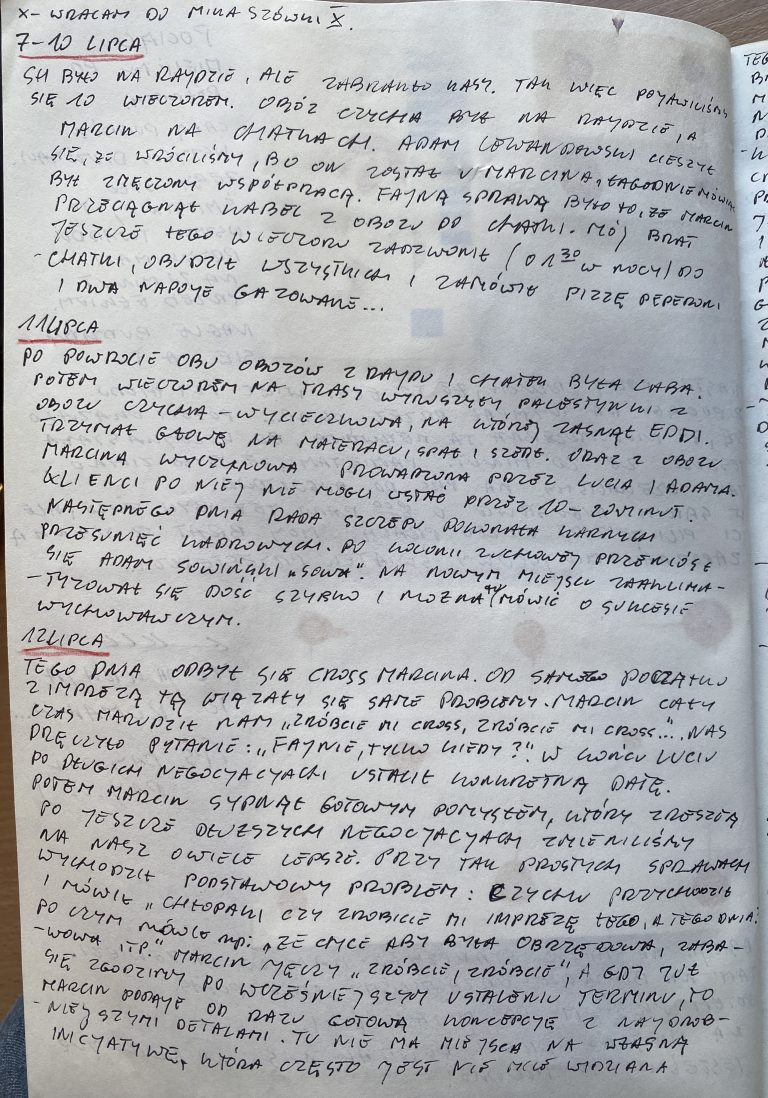 X-WRACAM DO MIKASZÓWKI X.
7-10 LIPCA
SH BYŁO NA RAJDZIE, ALE ZABRAKŁO KASY. TAK WIĘC POJAWILIŚMY
SIĘ 10 WIECZOREM. OBÓZ CZYCHA BYŁ NA RAJDZIE, A
MARCIN NA CHATKACH. ADAM LEWANDOWSKI CIESZYŁ
SIĘ, ŻE WRÓCILIŚMY, BO ON ZOSTAŁ U MARCINA, ŁAGODNIE MÓWIĄC
BYŁ ZMĘCZONY WSPÓŁPRACĄ. FAJNĄ SPRAWĄ BYŁO TO, ŻE MARCIN
PRZECIĄGNĄŁ KABEL Z OBOZU DO CHATKI. MÓJ BRAT
JESZCZE TEGO WIECZORU ZADZWONIŁ (O 1 30 W NOCY) DO
-CHATKI, OBUDZIŁ WSZYSTKICH I ZAMÓWIŁ PIZZĘ PEPERONI
I DWA NAPOJE GAZOWANE...
11 LIPCA
PO POWROCIE OBU OBOZÓW Z RAJDU I CHATEK BYŁA LABA.
POTEM WIECZOREM NA TRASY WYRUSZYŁY PALESTYNKI Z
OBOZU CZYCHA - WYCIECZKOWA, NA KTÓREJ ZASNĄŁ EDDI.
TRZYMAŁ GŁOWĘ NA MATERACU, SPAŁ I SZEDŁ. ORAZ Z OBOZU
MARCINA WYCZYNOWA PROWADZONA PRZEZ LUCIA I ADAMA.
KLIENCI PO NIEJ NIE MOGLI USTAĆ PRZEZ 10-20 MINUT.
NASTĘPNEGO DNIA RADA SZCZEPU DOKONAŁA KARNYCH
PRZESUNIĘĆ KADROWYCH. PO KOLONII ZUCHOWEJ PRZENIÓSŁ
SIĘ ADAM SOWIŃSKI "SOWA". NA NOWYM MIEJSCU ZAAKLIMA-
-TYZOWAŁ SIĘ DOŚĆ SZYBKO I MOŻNA TU MÓWIĆ O SUKCESIE
WYCHOWAWCZYM.
12 LIPCA
TEGO DNIA ODBYŁ SIĘ CROSS MARCINA. OD SAMEGO POCZĄTKU
Z IMPREZĄ TĄ WIĄZAŁY SIĘ SAME PROBLEMY. MARCIN CAŁY
CZAS MARUDZIŁ NAM "ZRÓBCIE MI CROSS, ZRÓBCIE MI CROSS...". NAS
DRĘCZYŁO PYTANIE: "FAJNIE, TYLKO KIEDY?". W KOŃCU LUCIU
PO DŁUGICH NEGOCJACJACH USTALIŁ KONKRETNĄ DATĘ.
POTEM MARCIN SYPNĄŁ GOTOWYM POMYSŁEM, KTÓRY ZRESZTĄ
PO JESZCZE DŁUŻSZYCH NEGOCJACJACH ZMIENILIŚMY
NA NASZ O WIELE LEPSZE. PRZY TAK PROSTYCH SPRAWACH
WYCHODZIŁ PODSTAWOWY PROBLEM: CZYCHU PRZYCHODZIŁ
I MÓWIŁ "CHŁOPAKI CZY ZROBICIE MI IMPREZĘ TEGO, A TEGO DNIA?"
PO CZYM MÓWIŁ NP: "ŻE CHCE ABY BYŁA OBRZĘDOWA, ZABA-
-WOWA ITP." MARCIN MĘCZY "ZRÓBCIE, ZRÓBCIE", A GDY JUŻ
SIĘ ZGODZIMY PO WCZEŚNIEJSZYM USTALENIU TERMINU, TO
MARCIN PODAJE OD RAZU GOTOWĄ KONCEPCJĘ Z NAJDROB-
-NIEJSZYMI DETALAMI. TU NIE MA MIEJSCA NA WŁASNĄ
INICJATYWĘ, KTÓRA CZĘSTO JEST NIE MILE WIDZIANA